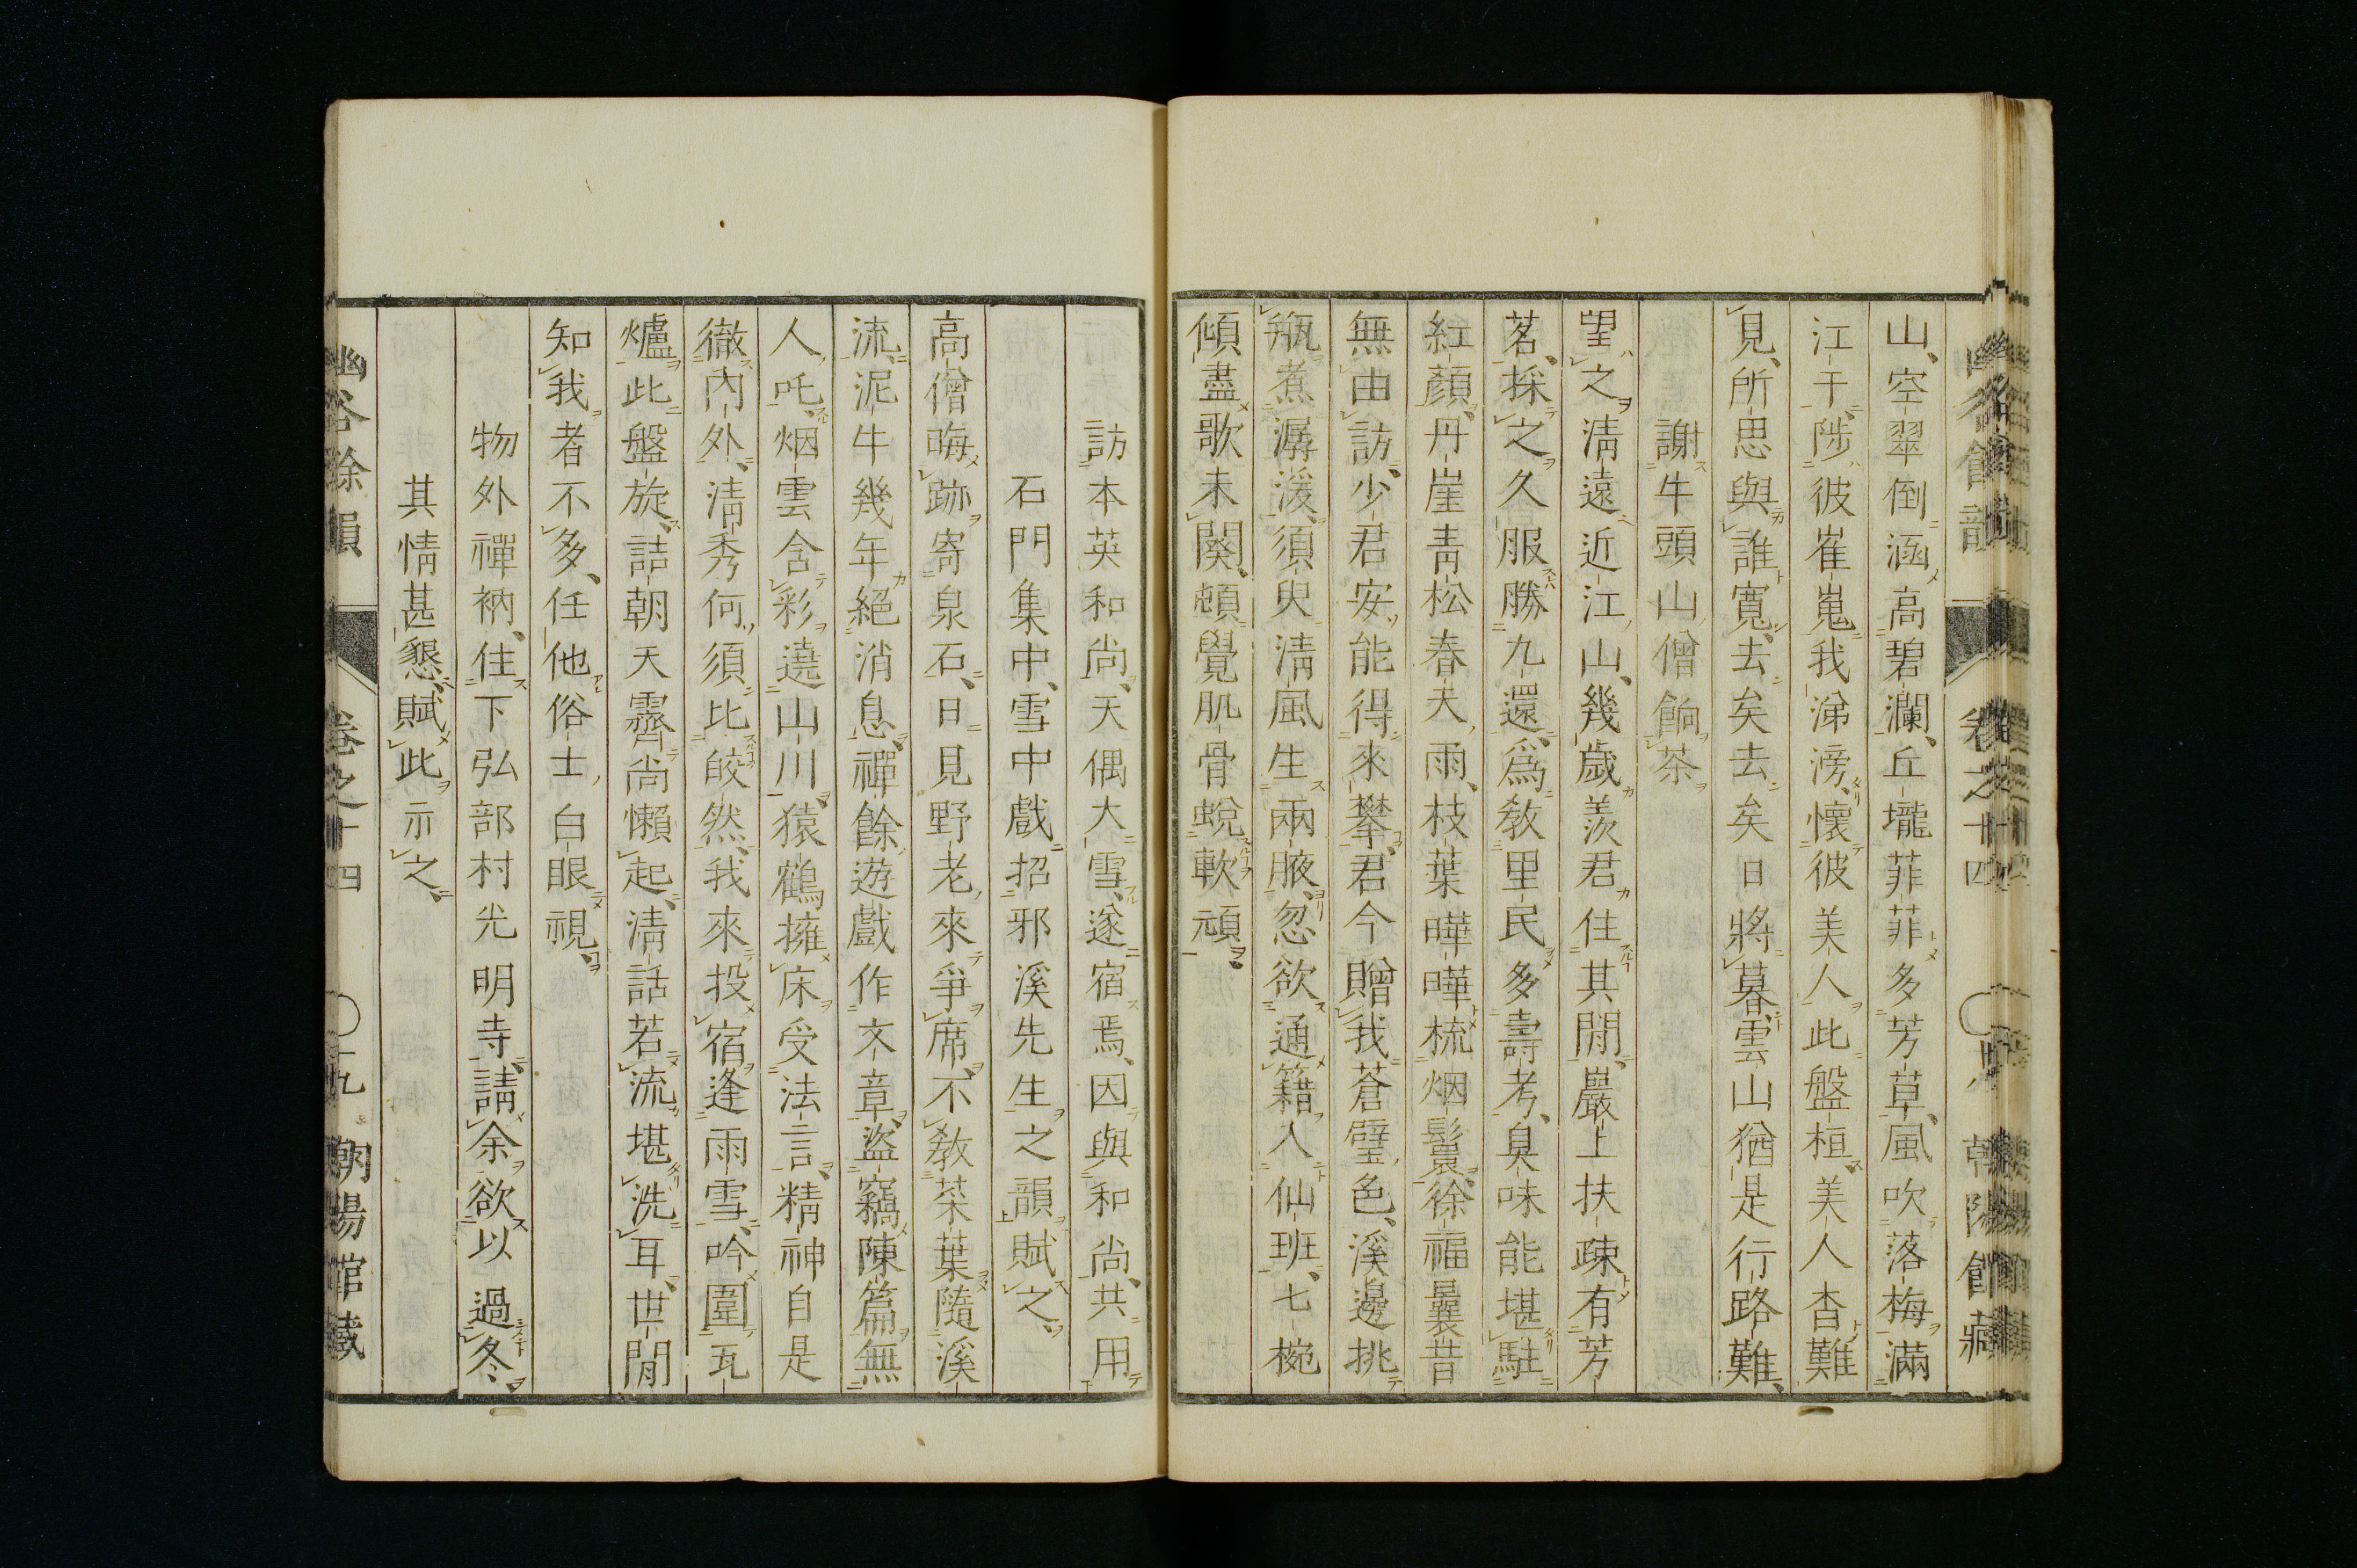 山、空翠倒涵高碧瀾、丘壠菲菲多芳草、風吹落梅滿
江干、陟彼崔嵬我涕滂、懷彼美人此盤桓美人杳難
見、所思與誰寬、去矣去矣日將暮、雲山猶是行路難、
謝牛頭山僧餉茶
望之淸遠近江山、幾歲羨君住其閒、巖上扶疎有芳
茗、採之久服勝九還、爲敎里民多壽考、臭味能堪駐
紅顏、丹崖靑松春天雨、枝葉曄曄梳烟鬟、徐福曩昔
無由訪、少君安能得來攀、君今贈我蒼璧色、溪邊挑
瓶煮潺湲、須臾淸風生兩腋、忽欲通籍人仙班、七椀
傾盡歌未闋、頓覺肌骨蛻軟頑
訪本英和尚、天偶大雪、遂宿焉、因與和尚、共用
石門集中、雪中戲招邪溪先生之韻賦之、
高僧晦跡寄泉石、日見野老來爭席、不敎菜葉隨溪
流、泥牛幾年絕消息、禪餘遊戲作文章、盜竊陳篇無
人吒、烟雲含彩遶山川、猿鶴擁床受法言、精神自是
徹內外、淸秀何須比皎然、我來投宿逢雨雪、吟圍瓦
爐此盤旋、詰朝天霽尚懶起、淸話若流堪洗耳、世閒
知我者不多、任他俗士白眼視、
物外禪衲、住下弘部村光明寺、請余欲以過冬
其情甚懇、賦此示之、
幽谷餘韻 卷之十四 〇十九 朝陽館藏